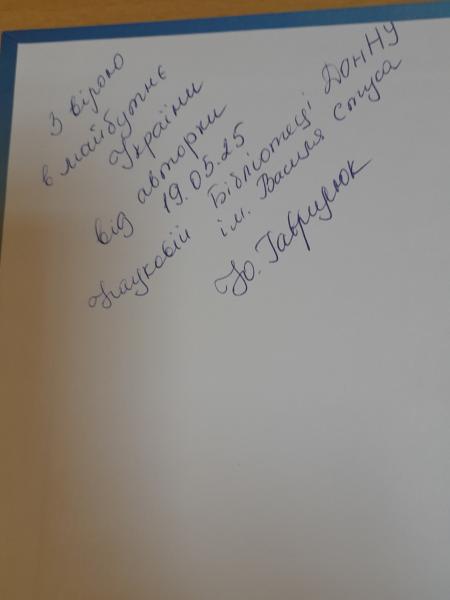 З вірою
в майбутнє
України
від авторки
19.05.25
Науковій Бібліотеці ДонНУ
ім. Василя Стуса
Ю. Гаврилюк